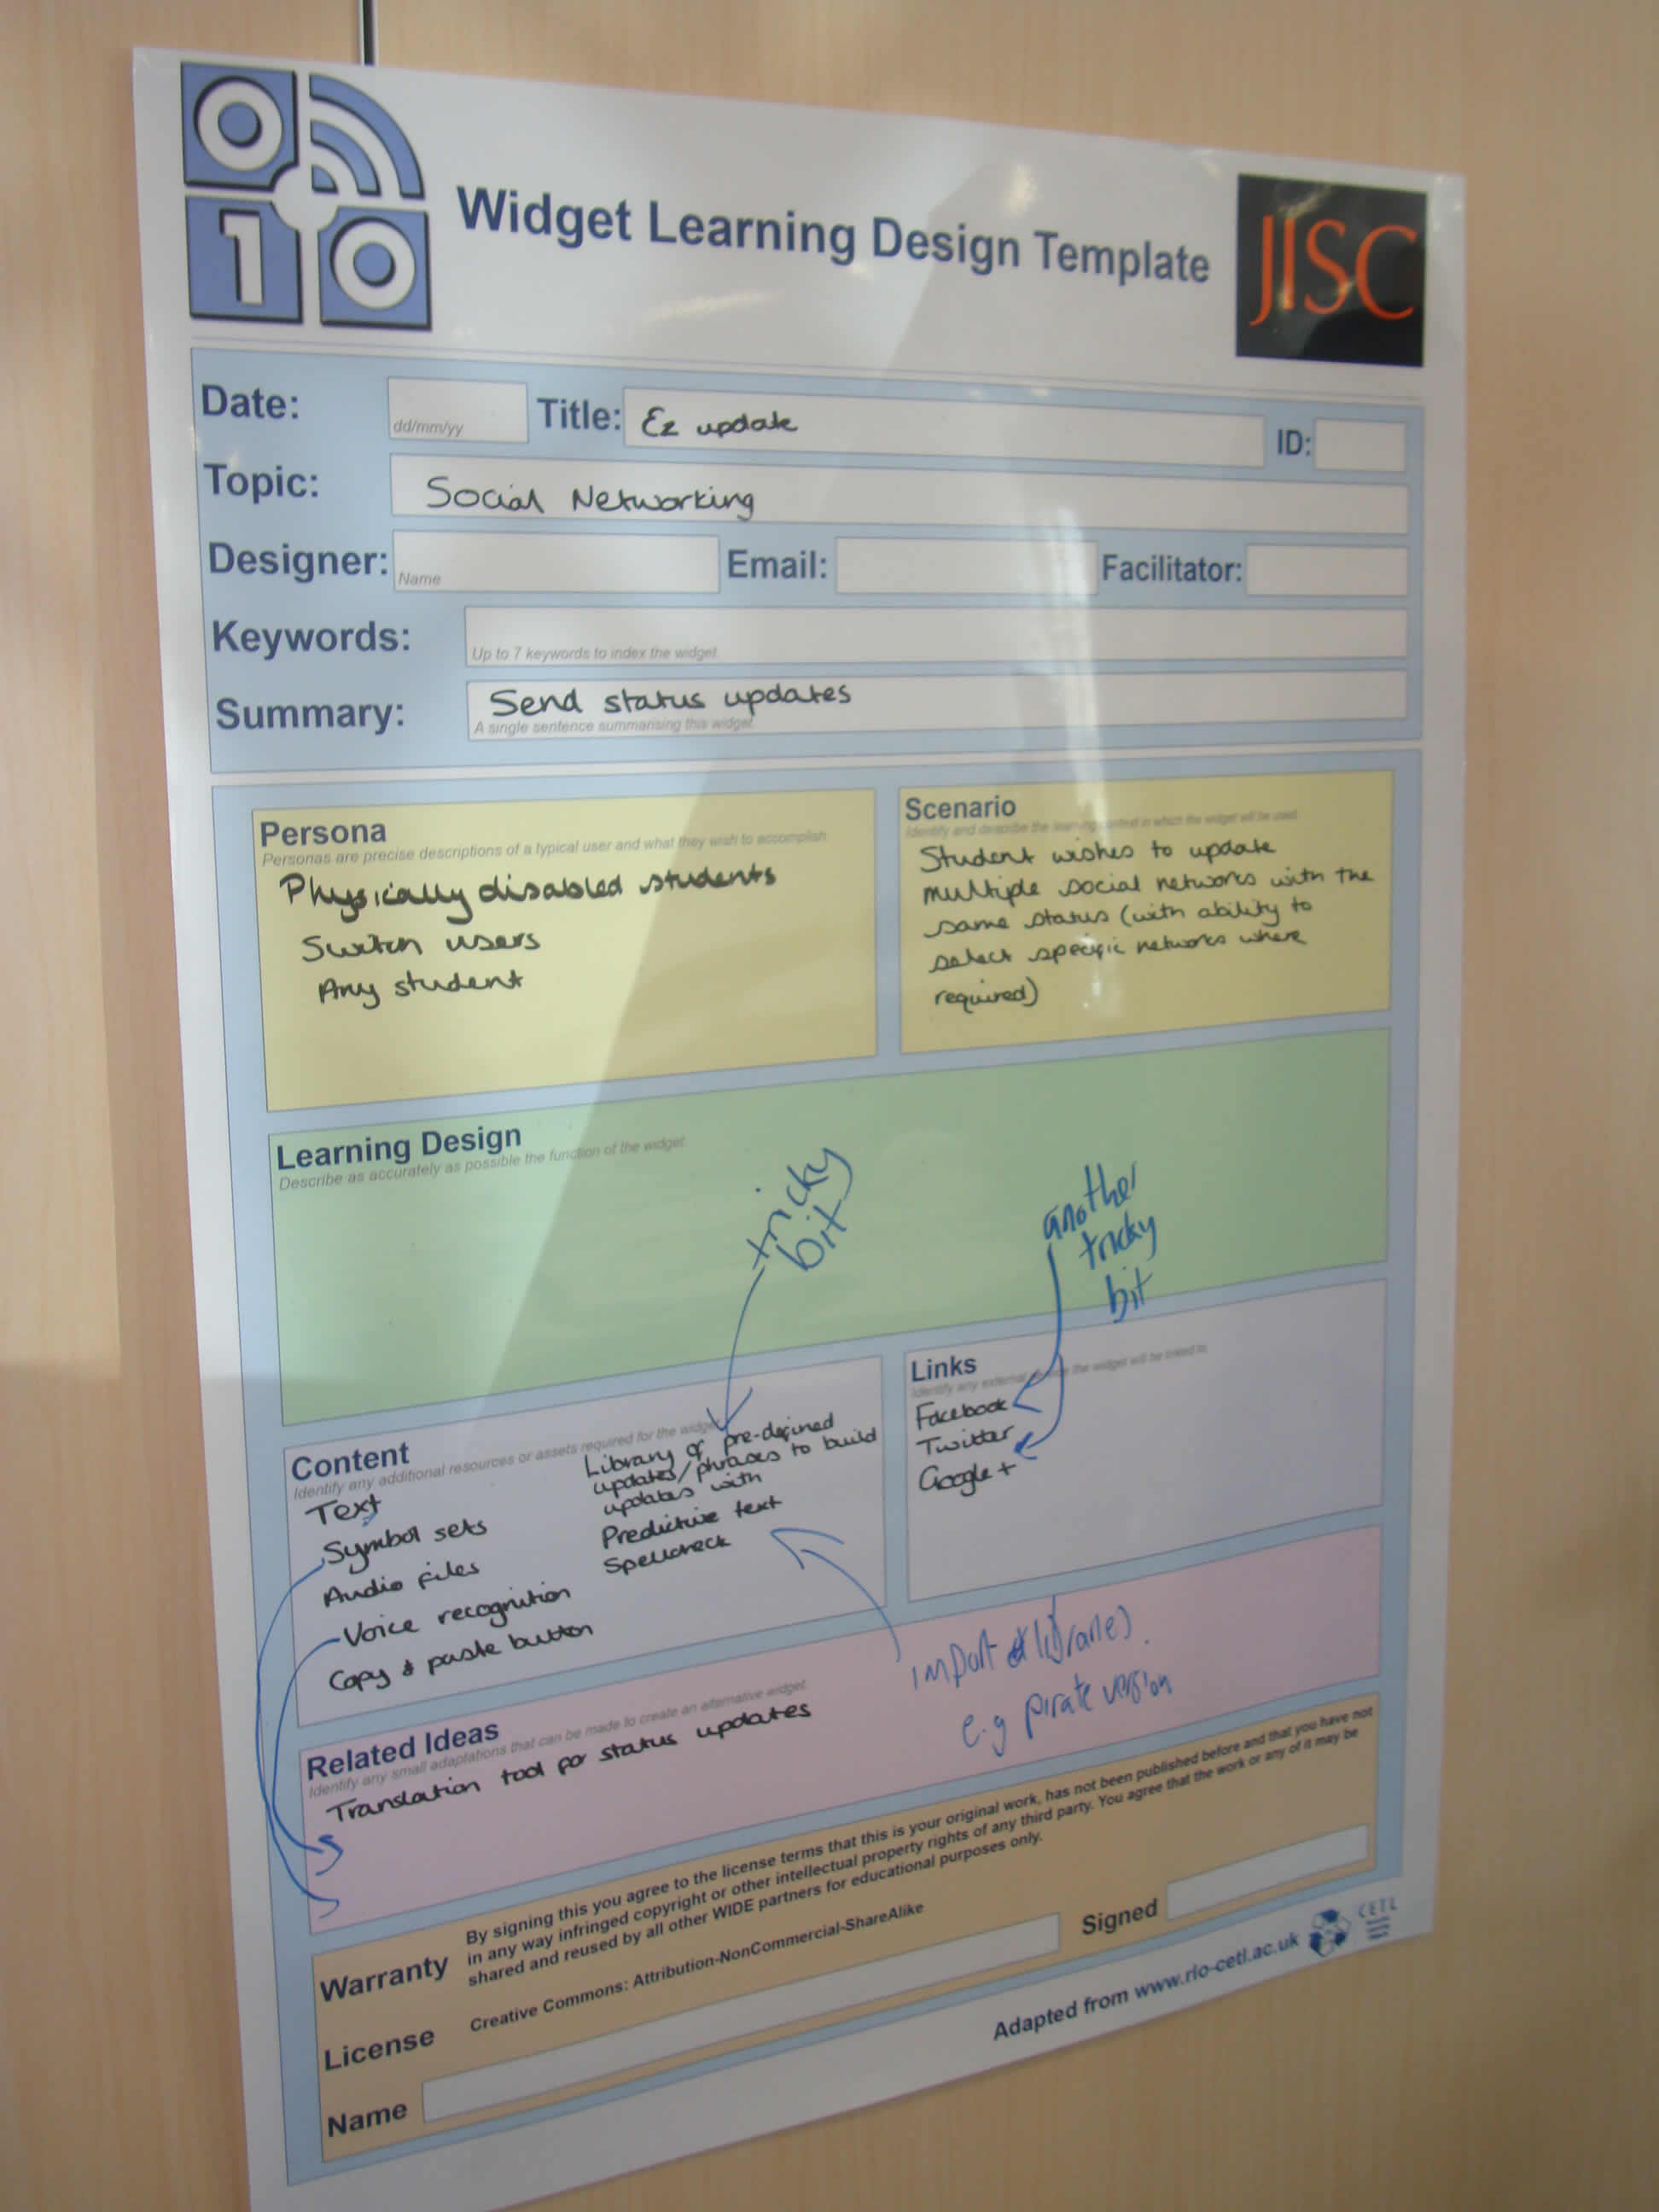 010
Widget Learning Design Template
JISC
Date:
dd/mm/yy
Title:
Ez update
ID:
Topic:
Social Networking
Designer:
Name
Email:
Facilitator:
Keywords:
Up to 7 keywords to index the widget.
Summary:
Send status updates
A single sentence summarising this widget.
Persona
Personas are precise descriptions of a typical user and what they wish to accomplish.
Physically disabled students
Switch users
Any student
Scenario
Identify and describe the learning context in which the widget will be used.
Student wishes to update
multiple social networks with the
same status (with ability to
select specific networks where
required)
Learning Design
Describe as accurately as possible the function of the widget.
tricky
bit
another
tricky
bit
Content
Identify any additional resources or assets required for the widget
Text
Symbol sets
Audio files
Voice recognition
Copy & paste button
Library of pre-defined
updates/phrases to build
updates with
Predictive text
Spellcheck
Links
Identify any external the widget will be linked to
Facebook
Twitter
Google+
import libraries
e.g pirate version
Related Ideas
Identify any small adaptations that can be made to create an alternative widget
Translation tool for status updates
Warranty
By signing this you agree to the license terms that this is your original work, has not been published before and that you have not
in any way infringed copyright or other intellectual property rights of any third party. You agree that the work or any of it may be
shared and reused by all other WIDE partners for educational purposes only.
License
Creative Commons: Attribution-NonCommercial-ShareAlike
Name
Signed
Adapted from www.rlo-cetl.ac.uk
CETL